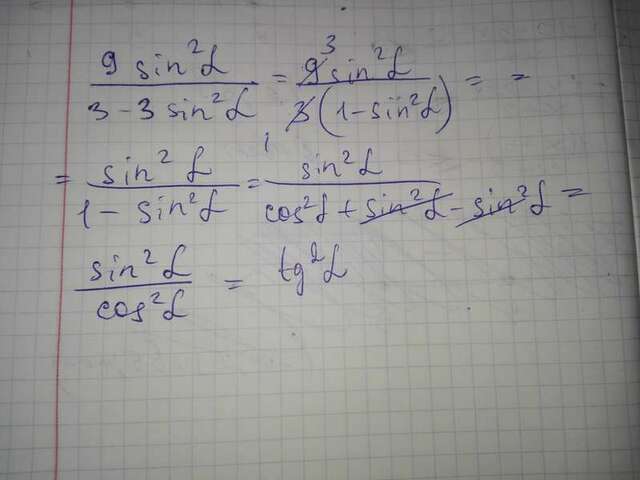 9 sin²α / 3 - 3 sin²α = 9 3 sin²α / 3 1 (1 - sin²α) = =
= sin²α / 1 - sin²α = sin²α / cos²α + sin²α - sin²α =
sin²α / cos²α = tg²α